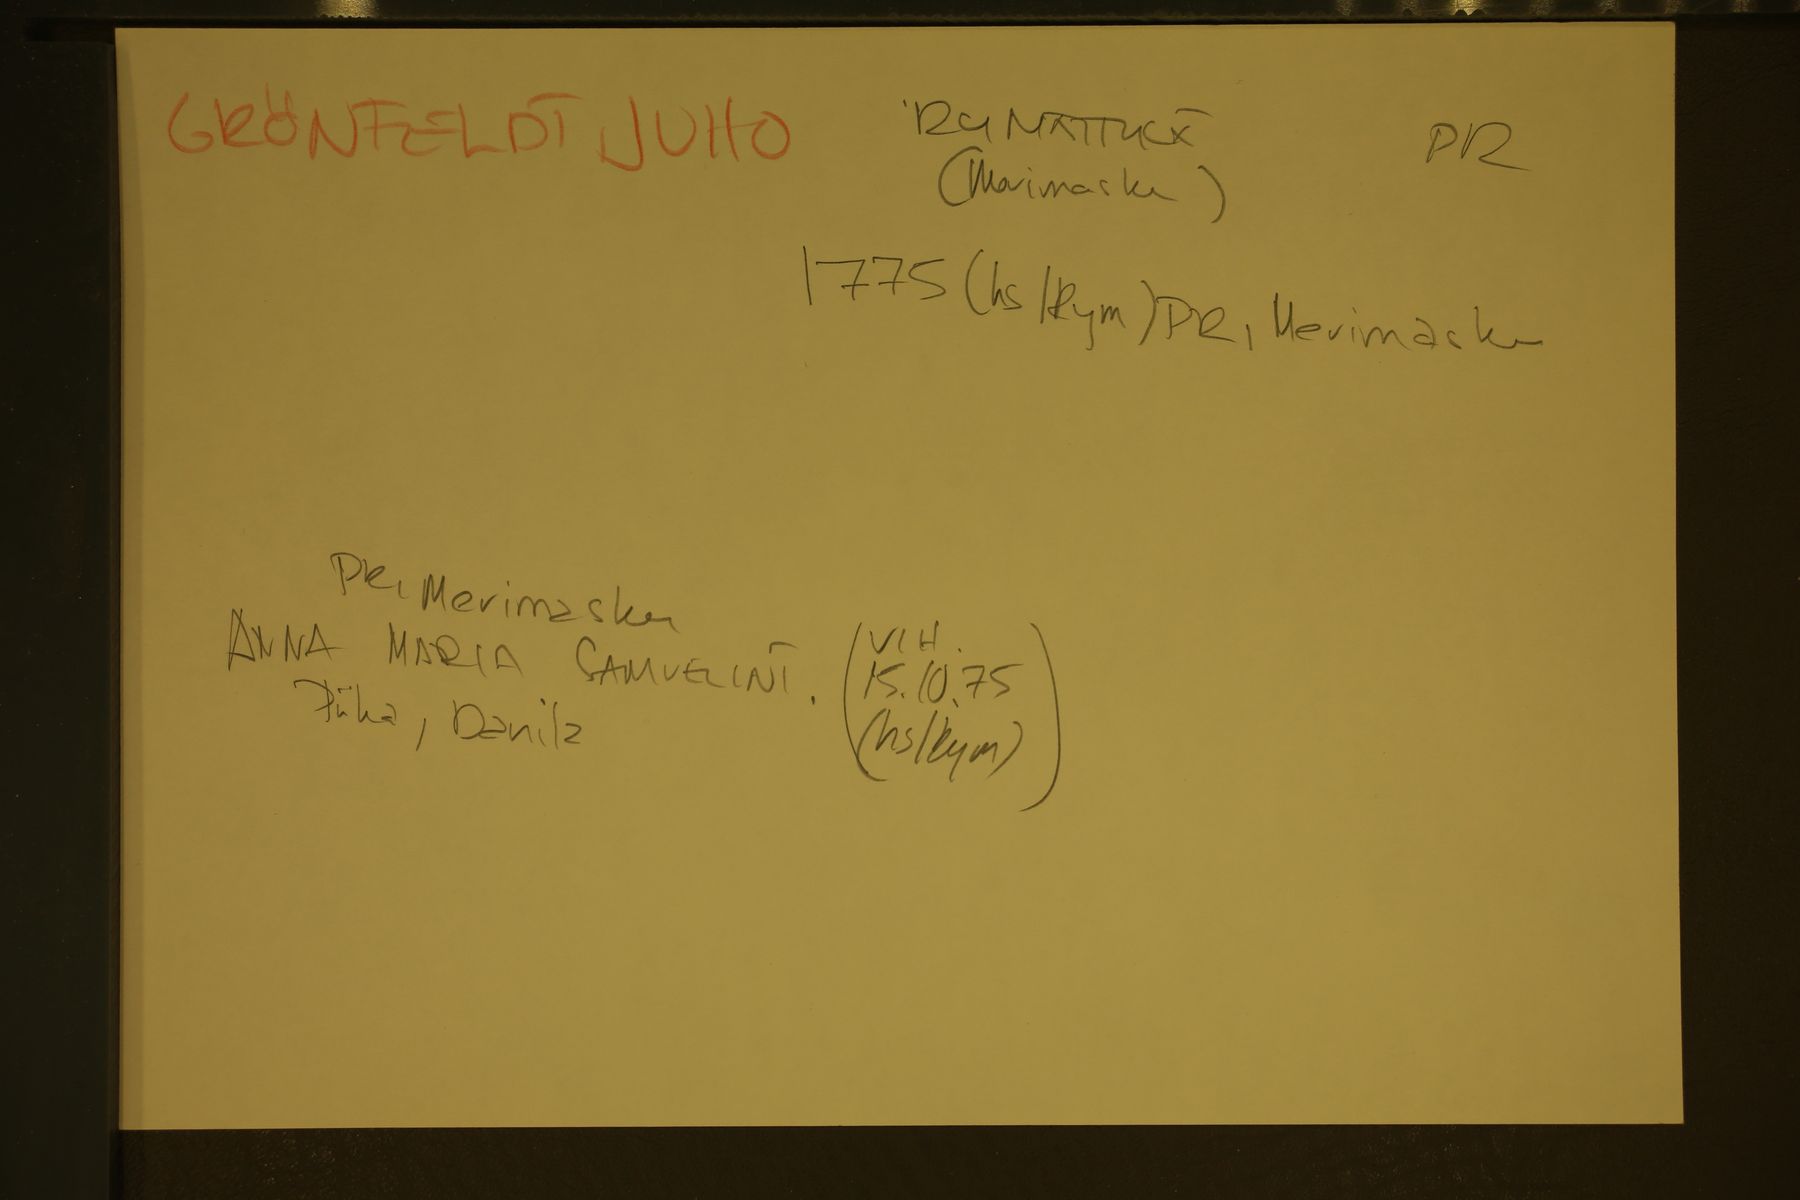 GRÖNFELDT JUHO
RYMÄTTYLÄ
PR
(Merimasku)
1775 (hs/Rym) PR, Merimasku
PR, Merimasku
ANNA MARIA SAMUELINT.
Piika, Danila
(VIH.
15.10.75
(hs/Rym))